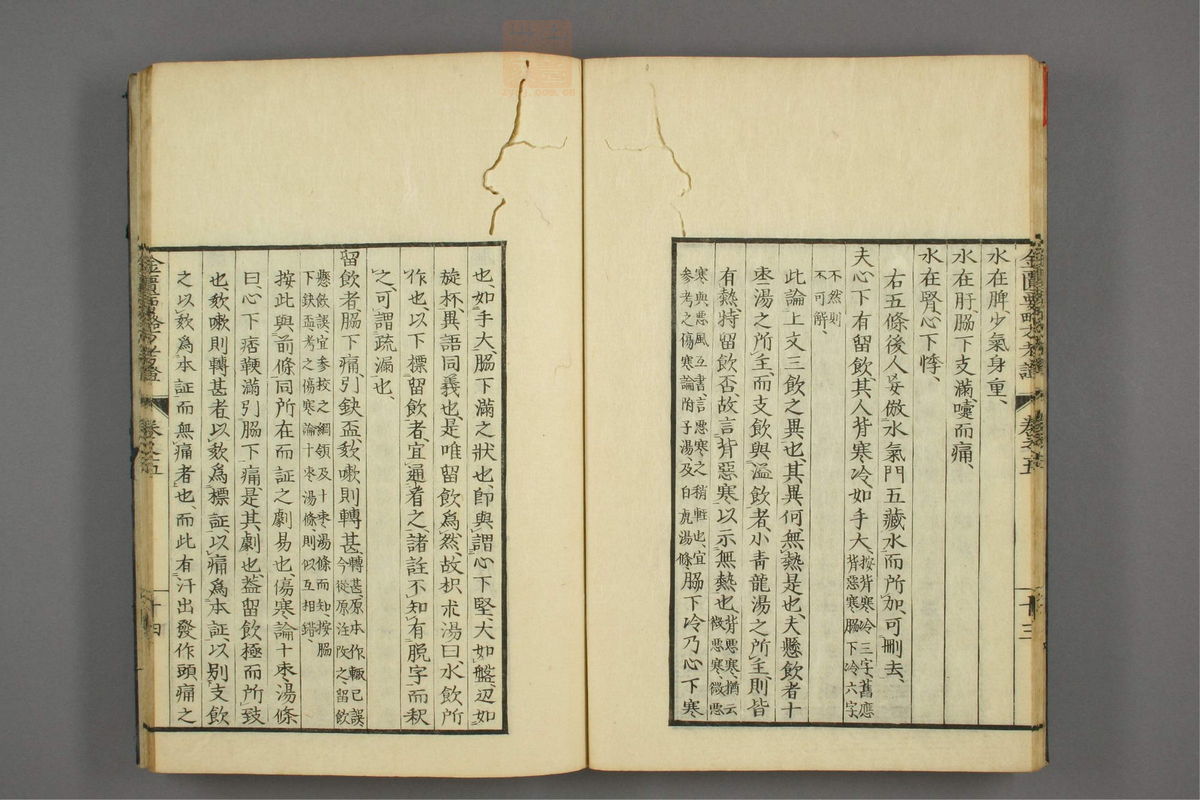 水在脾少氣身重、
水在肝、脇下支滿嚏而痛、
水在腎、心下悸、
右五條後人妄倣水氣門五藏水而所加、可刪去、
夫心下有留飲、其人背寒冷、如手大、按背寒冷三字、舊應
背惡寒脇下冷六字、
不然則
不可解、
此論上文三飲之異也、其異何、無熱是也、夫懸飲者十
棗湯之所主、而支飲與溢飲者、小青龍湯之所主、則皆
有熱特留飲否、故言背惡寒以示無熱也、背惡寒、猶云
微惡寒、微惡
寒與惡風互書、言惡寒之稍輕也、宜
參考之傷寒論附子湯、及白虎湯條、脇下冷乃心下寒
也、如手大、脇下滿之狀也、卽與謂心下堅、大如盤、辺如
旋杯、異語同義也、是唯留飲爲然、故枳朮湯曰水飲所
作也、以下標留飲者、宜通看之、諸註不知有脫字而釈
之、可謂疏漏也、
留飲者脇下痛引缺盆、欬嗽則轉甚、轉甚原本作輒已、誤
今從原注改之、留飲
懸飲誤、宜參校之綱領及十棗湯條而知、按脇
下缺盆、考之傷寒論十棗湯條、則似互相錯、
按此與前條同所在而証之劇易也、傷寒論十棗湯條
曰、心下痞鞕滿引脇下痛、是其劇也、蓋留飲極而所致
也、欬嗽則轉甚者、以欬爲標証、以痛爲本証、以別支飲
之以欬爲本証而無痛者也、而此有汗出發作頭痛之
金匱要略方考證
卷之五
十三
金匱要略方考證
卷之五
十四